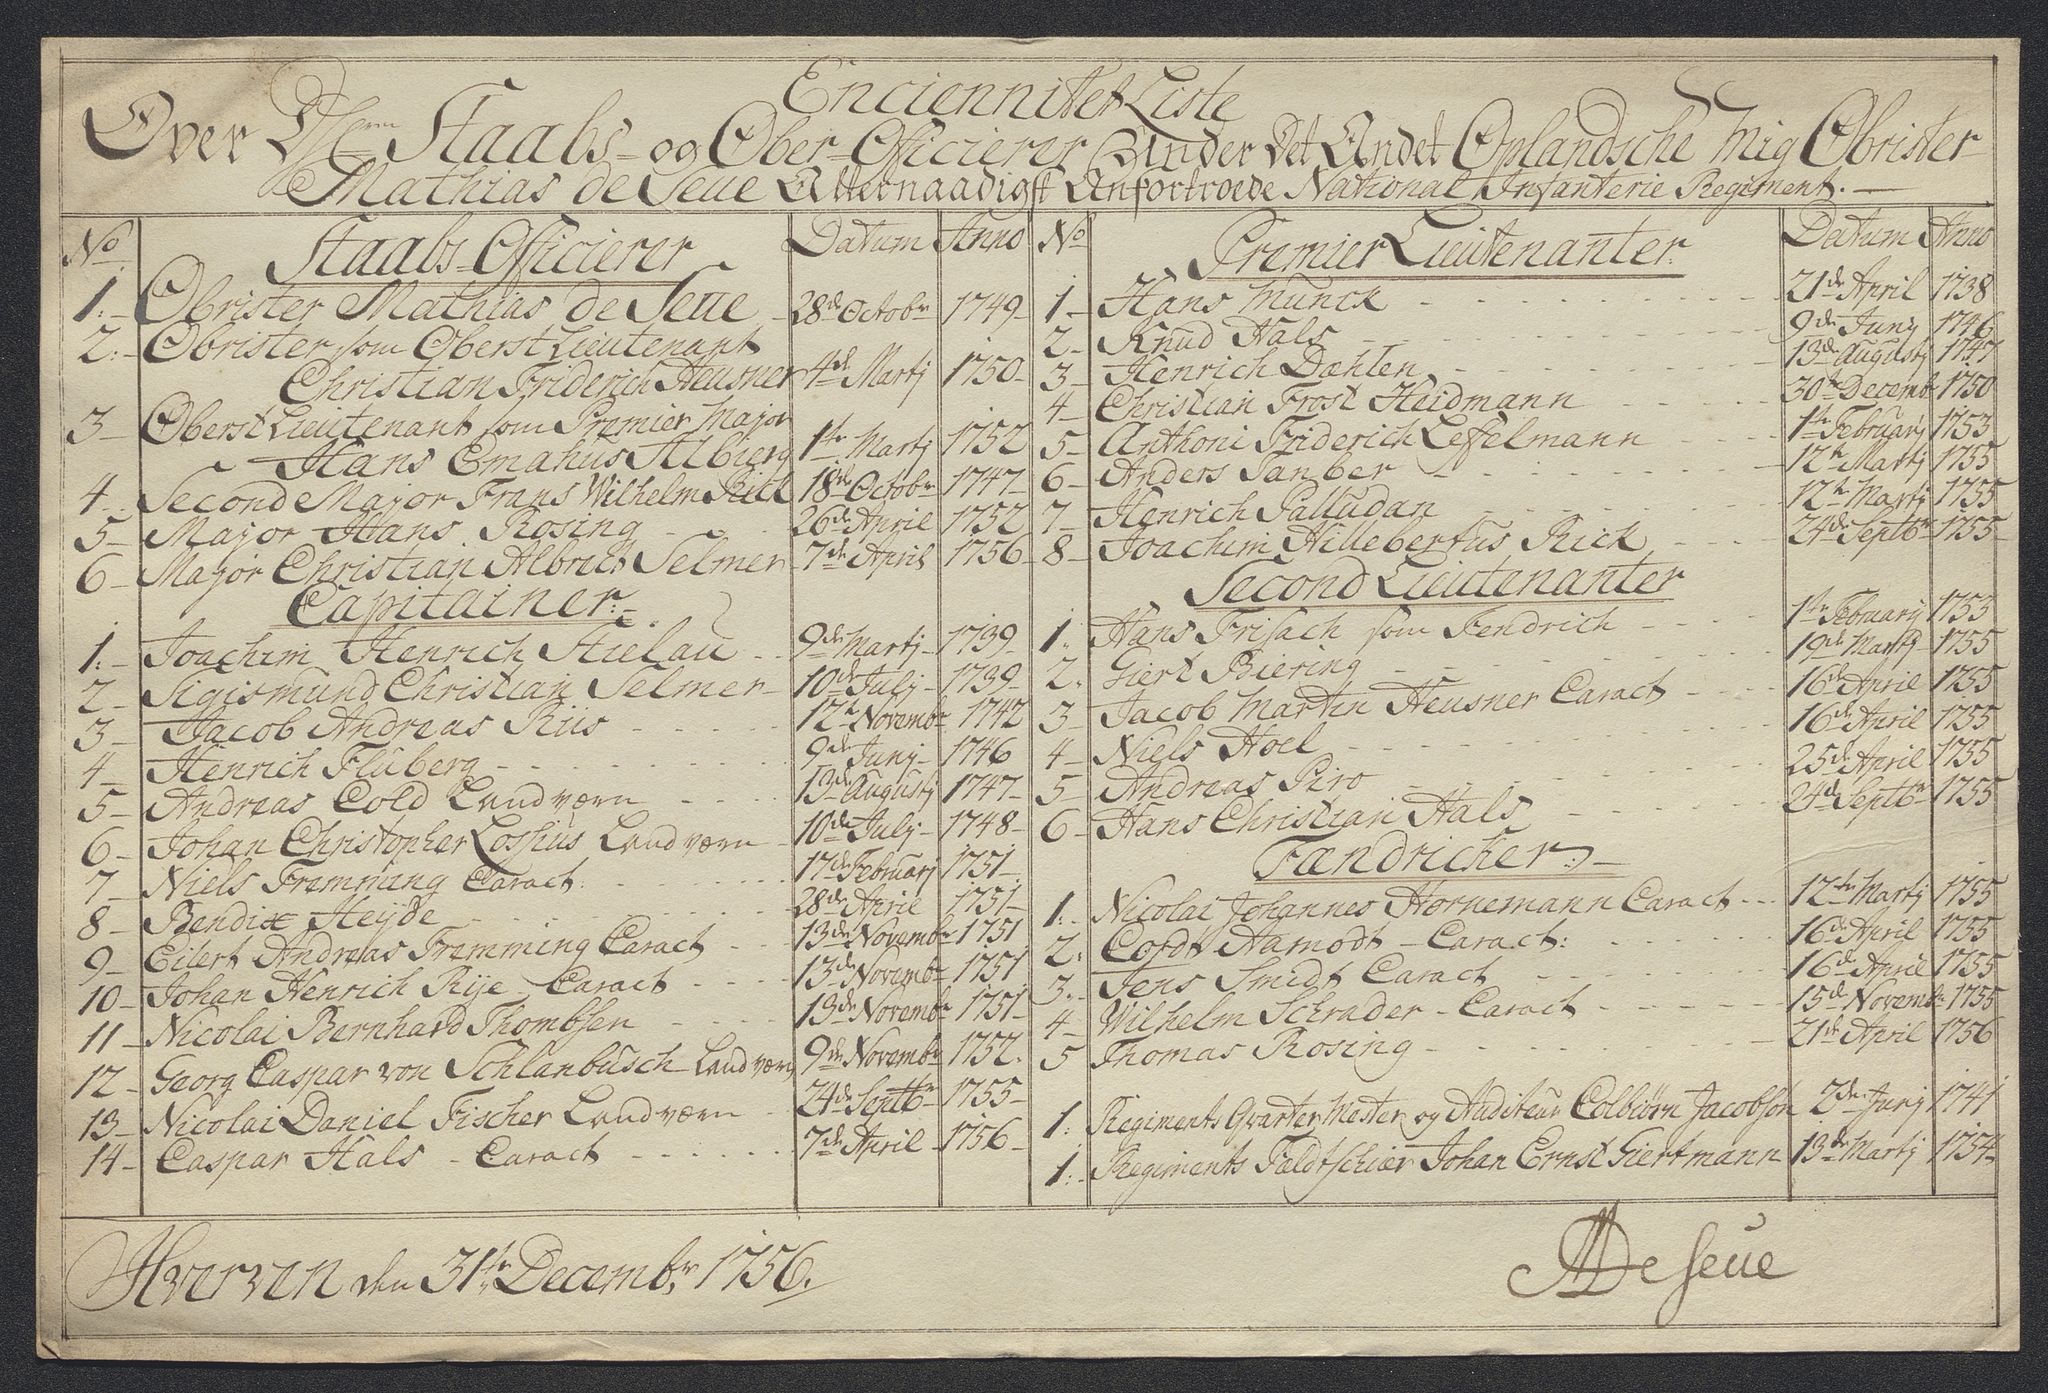 Enciennitet Liste
Over D Hrrn Staabs- og Ober-Officierer Under Det Andet Oplandsche Mig Obrister
Mathias de Seue Allernaadigst Anfortroede National Infanterie Regiment. —
No Staabs-Officierer Datum Anno
1. Obrister Mathias de Seue 28de Octobr 1749
2. Obrister som Oberst Lieutenant
Christian Friderich Heusner 4de Martj 1750
3 Oberst Lieutenant som Premier Major
Hans Emahus Albierg 1te Martj 1752
4 Second Major Frans Wilhelm 18de Octobr 1747
5 Major Hans Rosing 26de April 1752
6 Major Christian Albrect Selmer 7de April 1756
Capitainer:
1. Joachim Henrich Stielau 9de Martj 1739
2 Sigismund Christian Selmer 10de Julj 1739
3 Jacob Andreas Riis 12te Novembr 1742
4 Henrich Fluberg 9de Junj 1746
5 Andreas Cold Landværn 13de Augustj 1747
6 Johan Christopher Losjius Landværn 10de Julj 1748
7 Niels Fremming Caract: 17de Februarj 1751
8 Bendix Heÿde 28de April 1751
9 Eilert Andreas Fremming Caract 13de Novembr 1751
10 Johan Henrich Rije Caract 13de Novembr 1751
11 Nicolai Bernhard Thombsen 13de Novembr 1751
12 Georg Caspar von Schlanbusch Landværn 9de Novembr 1752
13 Nicolai Daniel Fischer Landværn 24de Septbr 1755
14 Caspar Hals Caract 7de April 1756
No Premier Lieutenanter Datum Anno
1 Hans Munck 21de April 1738
2 Knud Hals 9de Junj 1746
3 Henrich Dæhlen 13de Augustj 1747
4 Christian Frost Heidmann 30te Decemb 1750
5 Anthoni Friderich Leffelmann 1te Februarj 1753
6 Anders Sanber 12te Martj 1755
7 Henrich Palludan 12te Martj 1755
8 Joachim Hillebertus Rick 24de Septbr 1755
Second Lieutenanter
1. Hans Frisach som Fendrich 1te Februarij 1753
2. Giert Biering 19de Martj 1755
3 Jacob Martin Heusner Caract 16de April 1755
4 Niels Hoel 16de April 1755
5 Andreas Piro 25de April 1755
6 Hans Christian Hals 24de Septbr 1755
Fændricher:
1. Nicolai Johannes Hornemann Caract 12te Martj 1755
2. Cordt Aamodt Caract: 16de April 1755
3. Jens Smidt Caract 16de April 1755
4 Wilhelm Schrader Caract 15de Novembr 1755
5 Thomas Rosing 21de April 1756
1. Regiments Qvarter Mester og Auditeur Colbiørn Jacobsen 2de Junj 1741
1. Regiments Feldtschær Johan Ernst Giertmann 13de Martj 1754
Hverven den 31te Decembr 1756.
MDeSeue